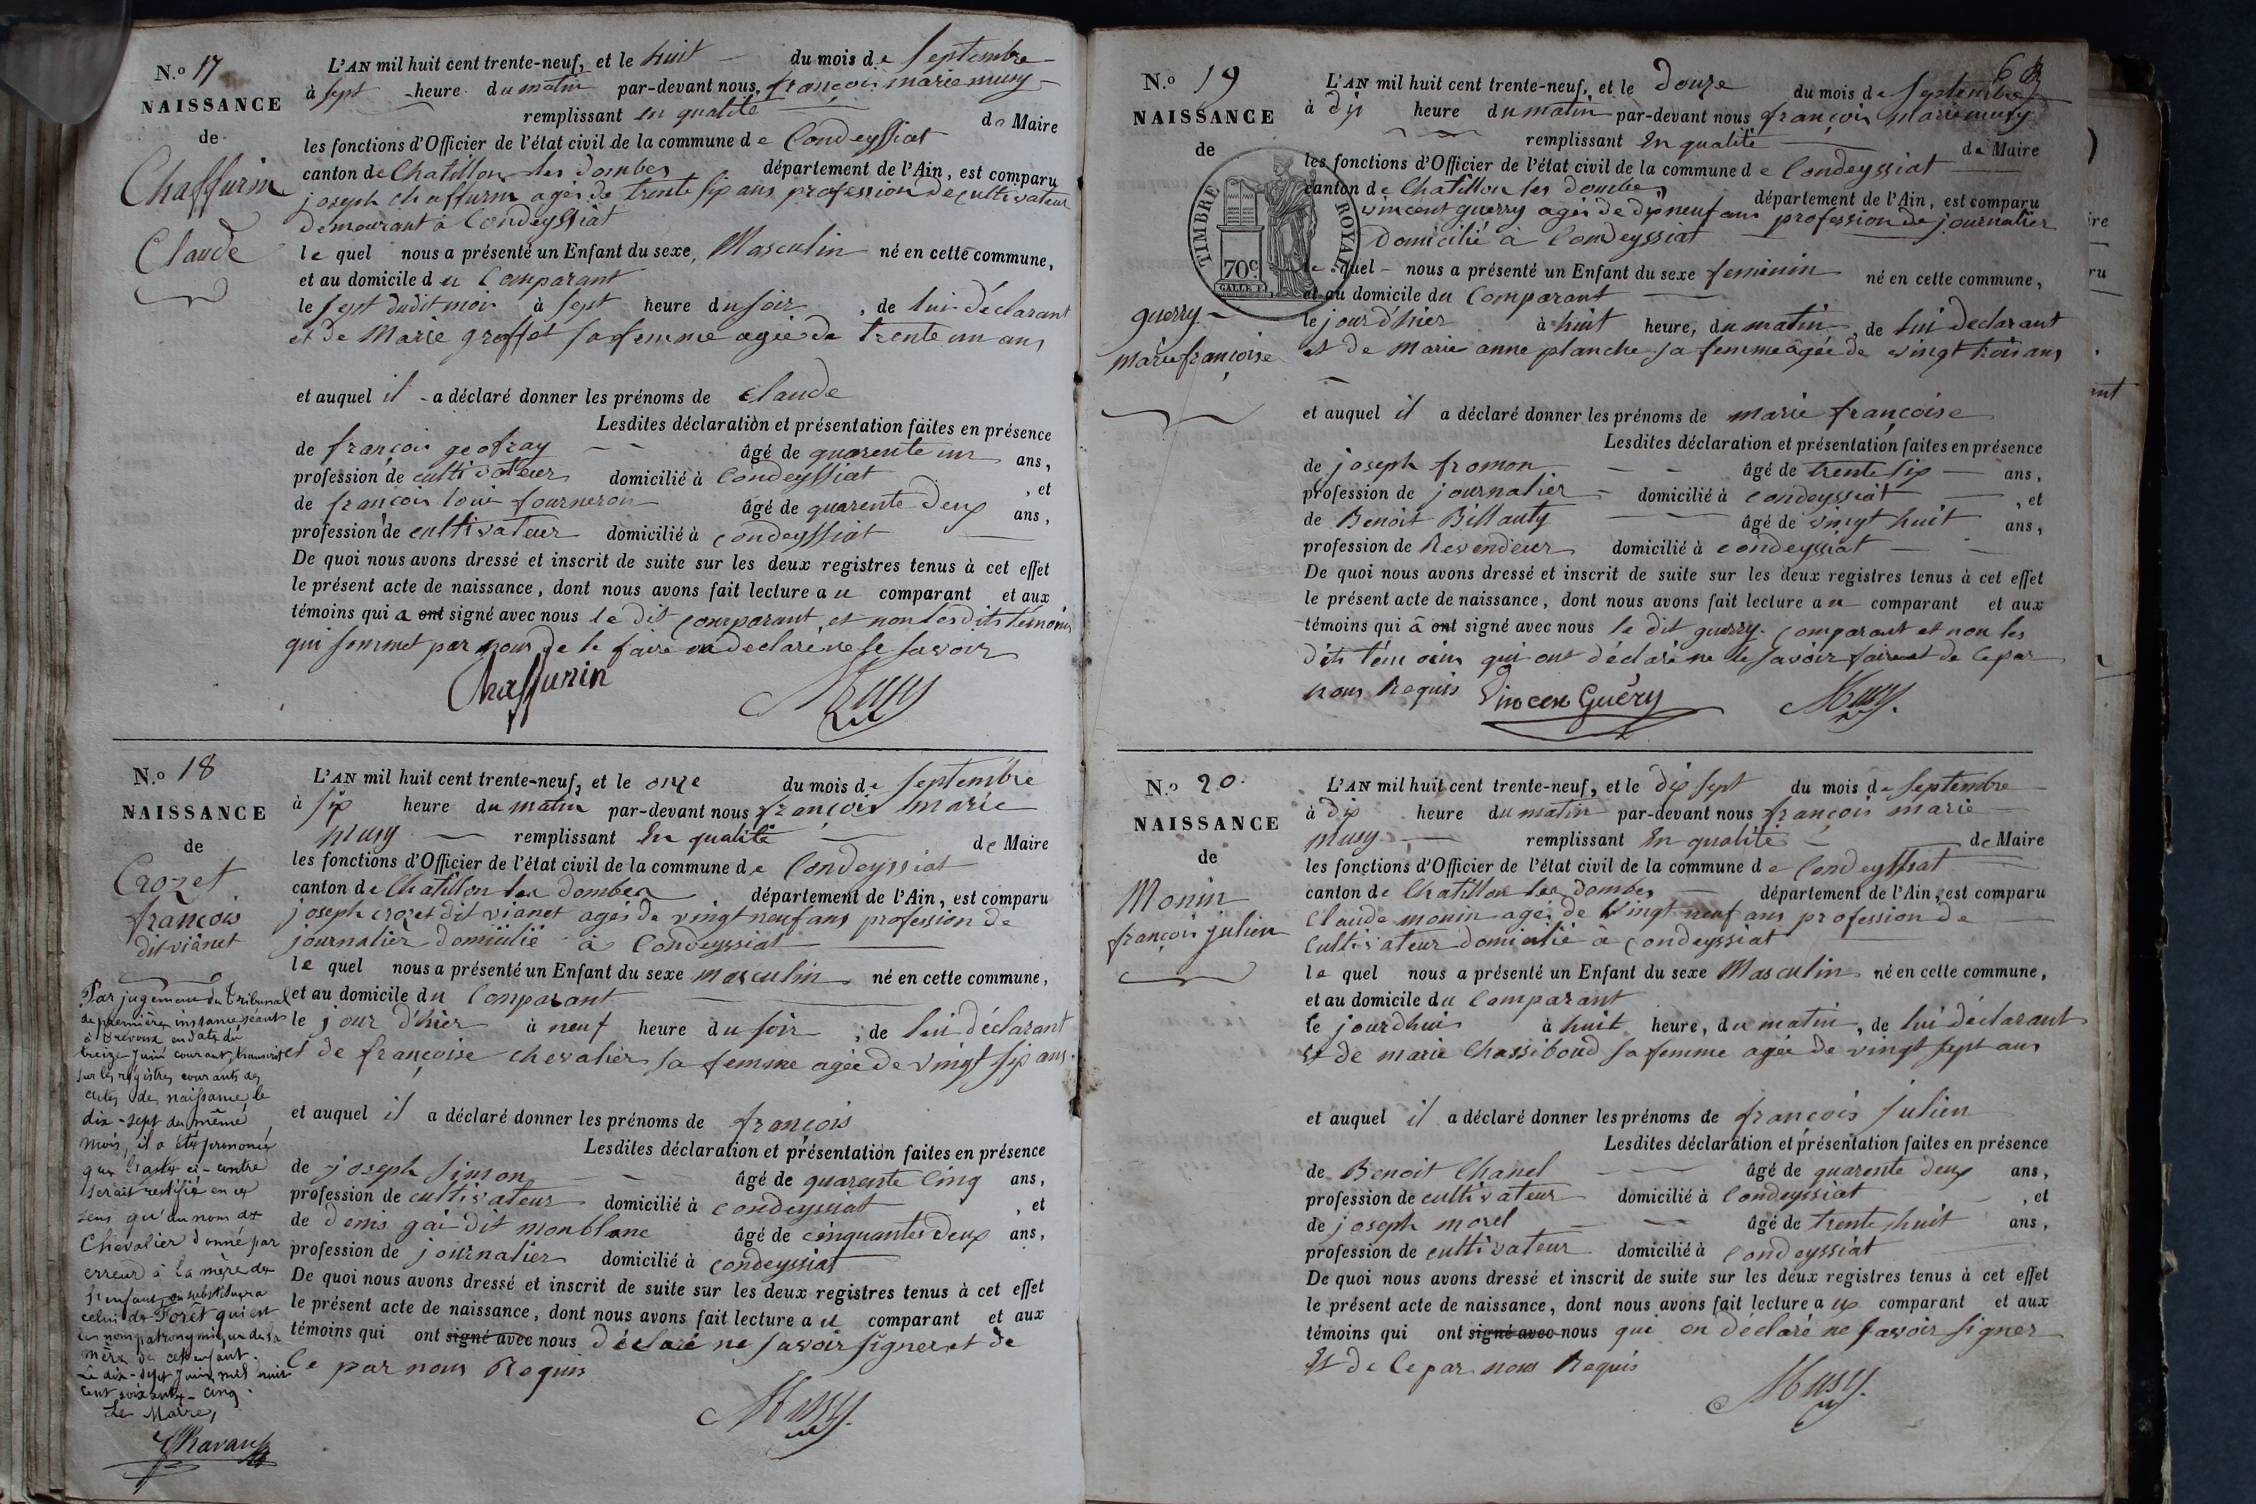 N.o 17
NAISSANCE
de
Chaffurin
Claude
L'AN mil huit cent trente-neuf, et le huit du mois de Septembre
à sept heure du matin par-devant nous, françois marie musy
remplissant en qualité de Maire
les fonctions d'Officier de l'état civil de la commune de Condeyssiat
canton de Chatillon les dombes département de l'Ain, est comparu
joseph chaffurin agés de trente six ans profession de cultivateur
demeurant à Condeyssiat
le quel nous a présenté un Enfant du sexe Masculin né en cette commune,
et au domicile du Comparant
le sept dudit mois à sept heure du soir, de lui déclarant
et de Marie groffet sa femme agée de trente un ans
et auquel il a déclaré donner les prénoms de Claude
Lesdites déclaration et présentation faites en présence
de françois geofray âgé de quarente un ans,
profession de cultivateur domicilié à Condeyssiat, et
de françois loui fourneron âgé de quarente deux ans,
profession de cultivateur domicilié à condeyssiat
De quoi nous avons dressé et inscrit de suite sur les deux registres tenus à cet effet
le présent acte de naissance, dont nous avons fait lecture au comparant et aux
témoins qui a ont signé avec nous le dit comparant et non lesdits témoins
qui sommet par nous de le faire on declaré ne le savoir
Chaffurin Musy
N.o 18
NAISSANCE
de
Crozet
françois
dit vianet
L'AN mil huit cent trente-neuf, et le onze du mois de Septembre
à six heure du matin par-devant nous françois marie
musy remplissant En qualité de Maire
les fonctions d'Officier de l'état civil de la commune de Condeyssiat
canton de Chatillon les dombes département de l'Ain, est comparu
joseph crozet dit vianet agés de vingt neuf ans profession de
journalier domicilié à Condeyssiat
le quel nous a présenté un Enfant du sexe masculin né en cette commune,
et au domicile du Comparant
le jour d'hier à neuf heure du soir, de lui déclarant
et de françoise chevalier sa femme agée de vingt six ans.
et auquel il a déclaré donner les prénoms de françois
Lesdites déclaration et présentation faites en présence
de joseph simon âgé de quarente Cinq ans,
profession de cultivateur domicilié à condeyssiat, et
de denis gai dit monblanc âgé de cinquantes deux ans,
profession de journalier domicilié à condeyssiat
De quoi nous avons dressé et inscrit de suite sur les deux registres tenus à cet effet
le présent acte de naissance, dont nous avons fait lecture au comparant et aux
témoins qui ont signé avec nous déclaré ne savoir signer et de
Ce par nous Requis
Musy
Par jugement du tribunal
de première instance séant
à trévoux en date du
treize juin courant, transcrit
sur les registres courants des
actes de naissance, le
dix-sept du même
mois, il a été prononcé
que l'acte ci-contre
serait rectifié en ce
sens qu'au nom de
Chevalier donné par
erreur à la mère de
l'enfant, on substituera
celui de Forêt qui est
le nom patronymique de la
mère de cet enfant.
Le dix-sept juin mil huit
cent soixante-cinq.
Le Maire,
N.o 19
NAISSANCE
de
guerry
marie françoise
TIMBRE ROYAL
70c.
L'AN mil huit cent trente-neuf, et le douze du mois de Septembre
à dix heure du matin par-devant nous françois marie musy
remplissant En qualité de Maire
les fonctions d'Officier de l'état civil de la commune de Condeyssiat
canton de Chatillon les dombes département de l'Ain, est comparu
vincent guerry agés de dixneuf ans profession de journalier
domicilié à Condeyssiat
le quel nous a présenté un Enfant du sexe feminin né en cette commune,
et au domicile du Comparant
le jour d'hier à huit heure, du matin, de lui declarant
et de Marie anne planche sa femme âgée de vingt trois ans
et auquel il a déclaré donner les prénoms de marie françoise
Lesdites déclaration et présentation faites en présence
de joseph fromon âgé de trente six ans,
profession de journalier domicilié à condeyssiat, et
de Benoit Billauty âgé de vingt huit ans,
profession de Revendeur domicilié à condeyssiat
De quoi nous avons dressé et inscrit de suite sur les deux registres tenus à cet effet
le présent acte de naissance, dont nous avons fait lecture au comparant et aux
témoins qui a ont signé avec nous le dit guerry comparant et non les
dits témoins qui ont déclaré ne le savoir faire et de Ce par
nous Requis Vincen Guéry Musy
N.o 20.
NAISSANCE
de
Monin
françois julien
L'AN mil huit cent trente-neuf, et le dix sept du mois de Septembre
à dix heure du matin par-devant nous françois marie
musy remplissant En qualité de Maire
les fonctions d'Officier de l'état civil de la commune de Condeyssiat
canton de Chatillon les dombes département de l'Ain, est comparu
Claude monin agés de vingt neuf ans profession de
Cultivateur domicilié à Condeyssiat
le quel nous a présenté un Enfant du sexe Masculin né en cette commune,
et au domicile du Comparant
le jourdhui à huit heure, du matin, de lui déclarant
Et de marie Chassiboud sa femme agée de vingt sept ans
et auquel il a déclaré donner les prénoms de françois Julien
Lesdites déclaration et présentation faites en présence
de Benoit Chanel âgé de quarente deux ans,
profession de cultivateur domicilié à Condeyssiat, et
de joseph morel âgé de trente huit ans,
profession de cultivateur domicilié à Condeyssiat
De quoi nous avons dressé et inscrit de suite sur les deux registres tenus à cet effet
le présent acte de naissance, dont nous avons fait lecture aux comparant et aux
témoins qui ont signé avec nous qui on déclaré ne savoir signer
Et de Ce par nous Requis
Musy